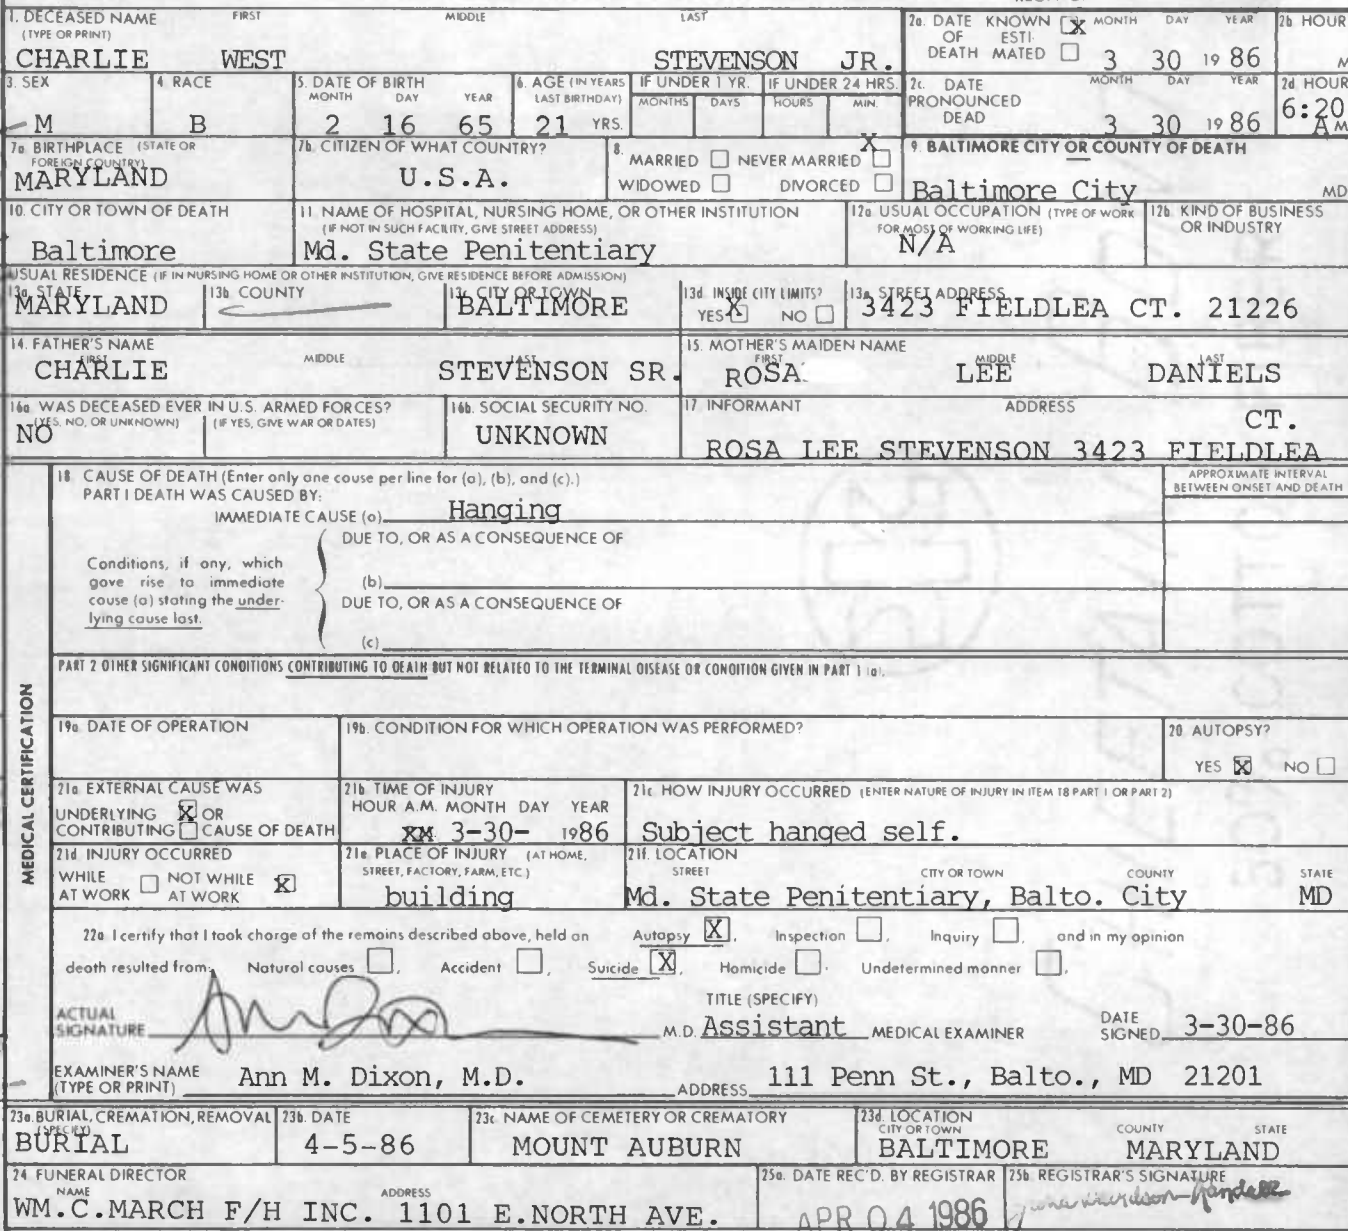 1. DECEASED NAME FIRST MIDDLE LAST
(TYPE OR PRINT)
CHARLIE WEST STEVENSON JR.
2a. DATE KNOWN X MONTH DAY YEAR
OF ESTI-
DEATH MATED 3 30 1986
2b. HOUR
M
3. SEX
M
4. RACE
B
5. DATE OF BIRTH
MONTH DAY YEAR
2 16 65
6. AGE (IN YEARS
LAST BIRTHDAY)
21 YRS.
IF UNDER 1 YR.
MONTHS DAYS
IF UNDER 24 HRS.
HOURS MIN.
2c. DATE MONTH DAY YEAR
PRONOUNCED
DEAD 3 30 1986
2d. HOUR
6:20
A M
7a. BIRTHPLACE (STATE OR
FOREIGN COUNTRY)
MARYLAND
7b. CITIZEN OF WHAT COUNTRY?
U.S.A.
8. X
MARRIED NEVER MARRIED
WIDOWED DIVORCED
9. BALTIMORE CITY OR COUNTY OF DEATH
Baltimore City MD
10. CITY OR TOWN OF DEATH
Baltimore
11. NAME OF HOSPITAL, NURSING HOME, OR OTHER INSTITUTION
(IF NOT IN SUCH FACILITY, GIVE STREET ADDRESS)
Md. State Penitentiary
12a. USUAL OCCUPATION (TYPE OF WORK
FOR MOST OF WORKING LIFE)
N/A
12b. KIND OF BUSINESS
OR INDUSTRY
USUAL RESIDENCE (IF IN NURSING HOME OR OTHER INSTITUTION, GIVE RESIDENCE BEFORE ADMISSION)
13a. STATE
MARYLAND
13b. COUNTY
13c. CITY OR TOWN
BALTIMORE
13d. INSIDE CITY LIMITS?
YES X NO
13e. STREET ADDRESS
3423 FIELDLEA CT. 21226
14. FATHER'S NAME
FIRST MIDDLE LAST
CHARLIE STEVENSON SR.
15. MOTHER'S MAIDEN NAME
FIRST MIDDLE LAST
ROSA LEE DANIELS
16a. WAS DECEASED EVER IN U.S. ARMED FORCES?
(YES, NO, OR UNKNOWN) (IF YES, GIVE WAR OR DATES)
NO
16b. SOCIAL SECURITY NO.
UNKNOWN
17. INFORMANT ADDRESS
CT.
ROSA LEE STEVENSON 3423 FIELDLEA
MEDICAL CERTIFICATION
18. CAUSE OF DEATH (Enter only one cause per line for (a), (b), and (c).)
PART I DEATH WAS CAUSED BY:
IMMEDIATE CAUSE (a) Hanging
APPROXIMATE INTERVAL
BETWEEN ONSET AND DEATH
DUE TO, OR AS A CONSEQUENCE OF
Conditions, if any, which
gave rise to immediate
cause (a) stating the under-
lying cause last.
(b)
DUE TO, OR AS A CONSEQUENCE OF
(c)
PART 2 OTHER SIGNIFICANT CONDITIONS CONTRIBUTING TO DEATH BUT NOT RELATED TO THE TERMINAL DISEASE OR CONDITION GIVEN IN PART 1 (a).
19a. DATE OF OPERATION
19b. CONDITION FOR WHICH OPERATION WAS PERFORMED?
20. AUTOPSY?
YES X NO
21a. EXTERNAL CAUSE WAS
UNDERLYING X OR
CONTRIBUTING CAUSE OF DEATH
21b. TIME OF INJURY
HOUR A.M. MONTH DAY YEAR
XM 3-30- 1986
21c. HOW INJURY OCCURRED (ENTER NATURE OF INJURY IN ITEM 18 PART 1 OR PART 2)
Subject hanged self.
21d. INJURY OCCURRED
WHILE NOT WHILE X
AT WORK AT WORK
21e. PLACE OF INJURY (AT HOME,
STREET, FACTORY, FARM, ETC.)
building
21f. LOCATION
STREET CITY OR TOWN COUNTY STATE
Md. State Penitentiary, Balto. City MD
22a. I certify that I took charge of the remains described above, held an Autopsy X, Inspection , Inquiry , and in my opinion
death resulted from: Natural causes , Accident , Suicide X, Homicide , Undetermined manner .
TITLE (SPECIFY)
ACTUAL
SIGNATURE M.D. Assistant MEDICAL EXAMINER
DATE
SIGNED 3-30-86
EXAMINER'S NAME
(TYPE OR PRINT) Ann M. Dixon, M.D. ADDRESS 111 Penn St., Balto., MD 21201
23a. BURIAL, CREMATION, REMOVAL
(SPECIFY)
BURIAL
23b. DATE
4-5-86
23c. NAME OF CEMETERY OR CREMATORY
MOUNT AUBURN
23d. LOCATION
CITY OR TOWN COUNTY STATE
BALTIMORE MARYLAND
24. FUNERAL DIRECTOR
NAME ADDRESS
WM.C.MARCH F/H INC. 1101 E.NORTH AVE.
25a. DATE REC'D. BY REGISTRAR
APR 04 1986
25b. REGISTRAR'S SIGNATURE